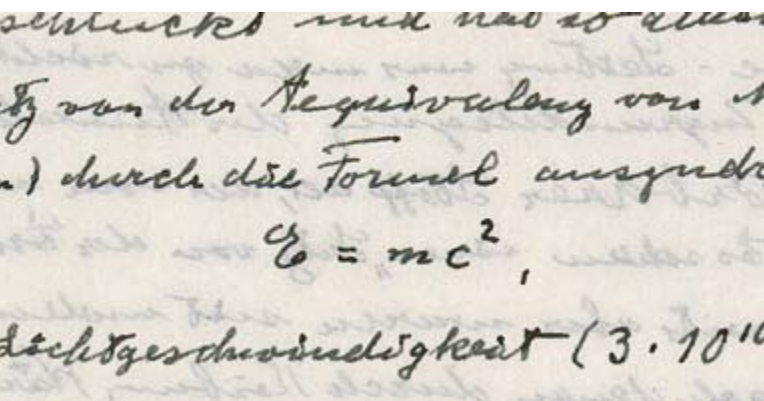 und hat so
von der Aequivalenz von
) durch die Formel auszudr
E = mc²,
Lichtgeschwindigkeit (3 · 10¹⁰